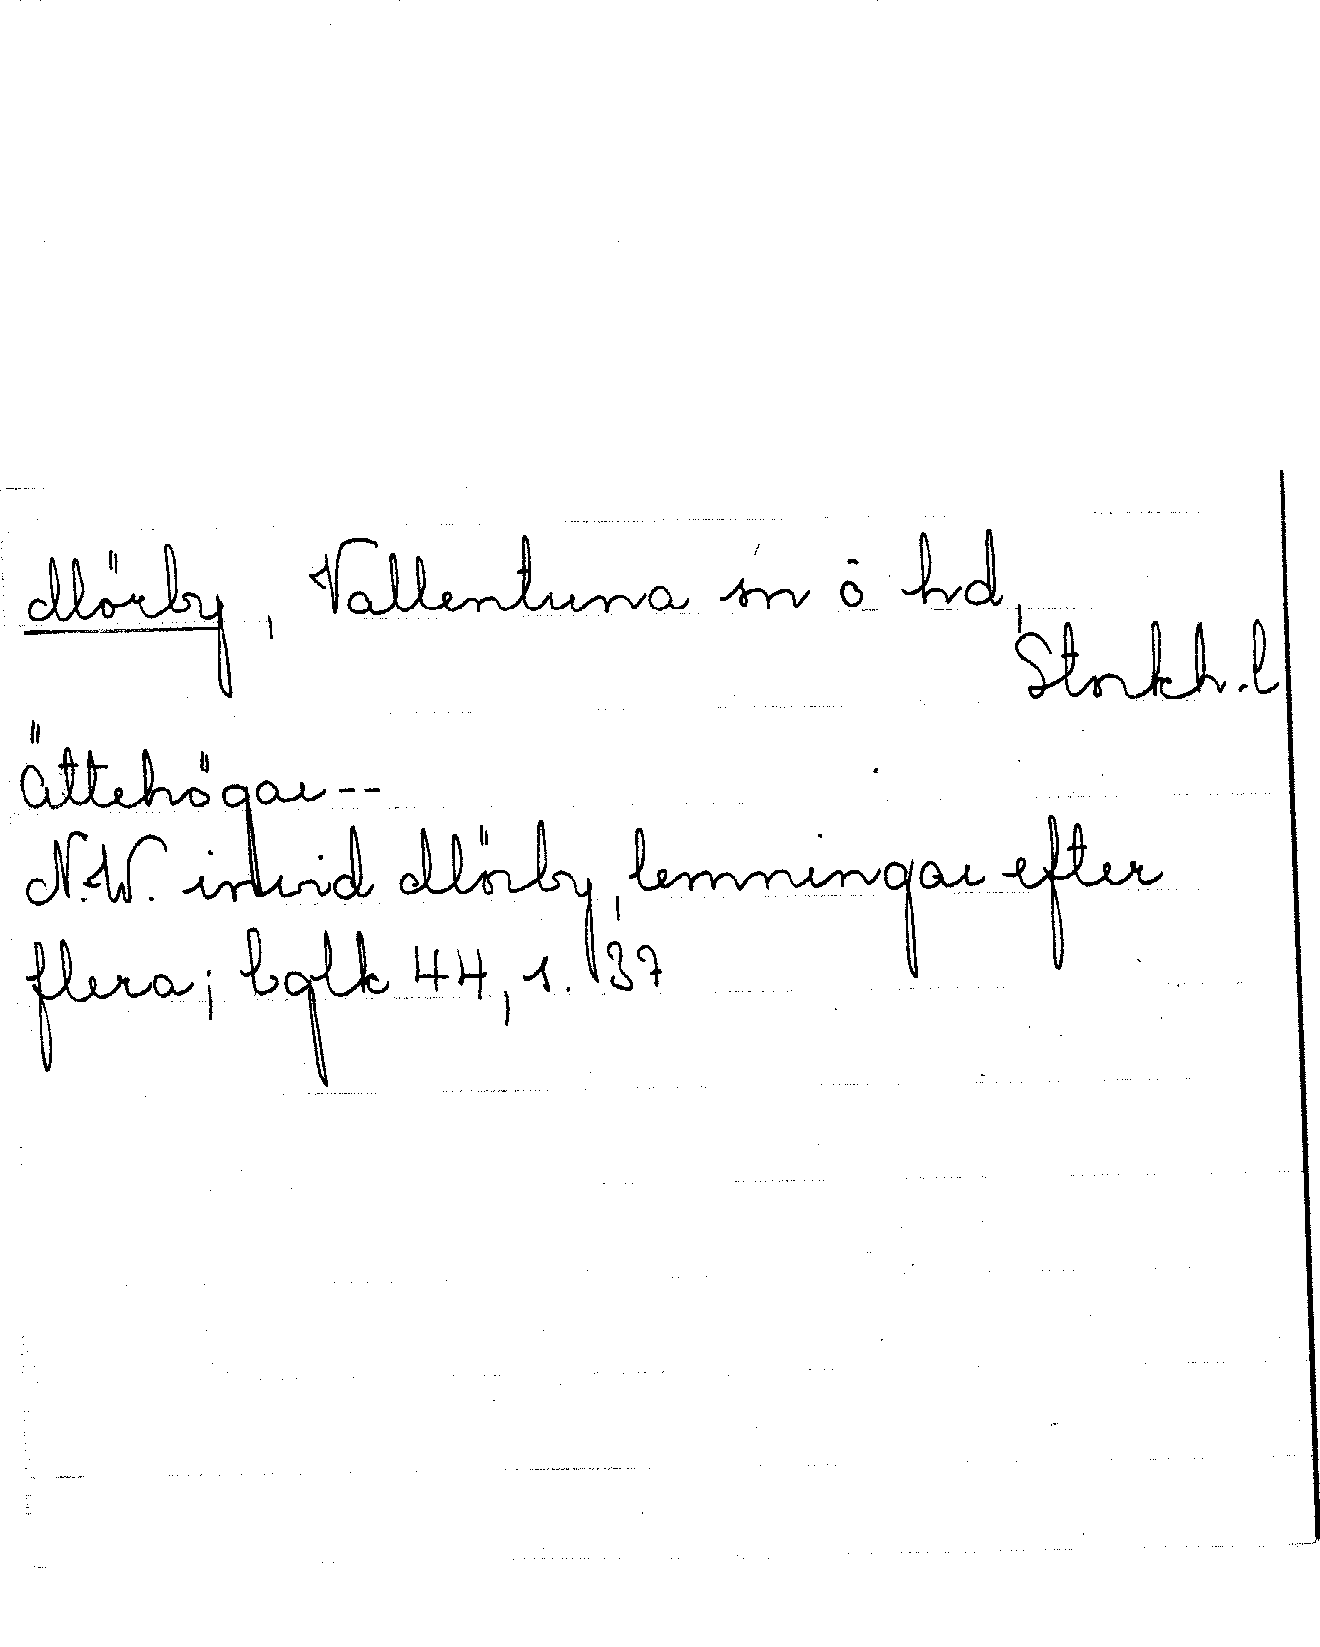 Mörby, Vallentuna sn o hd,
Stockh. l
Ättehögar--
N.W. invid Mörby, lemningar efter
flera; bglk 44, s. 37